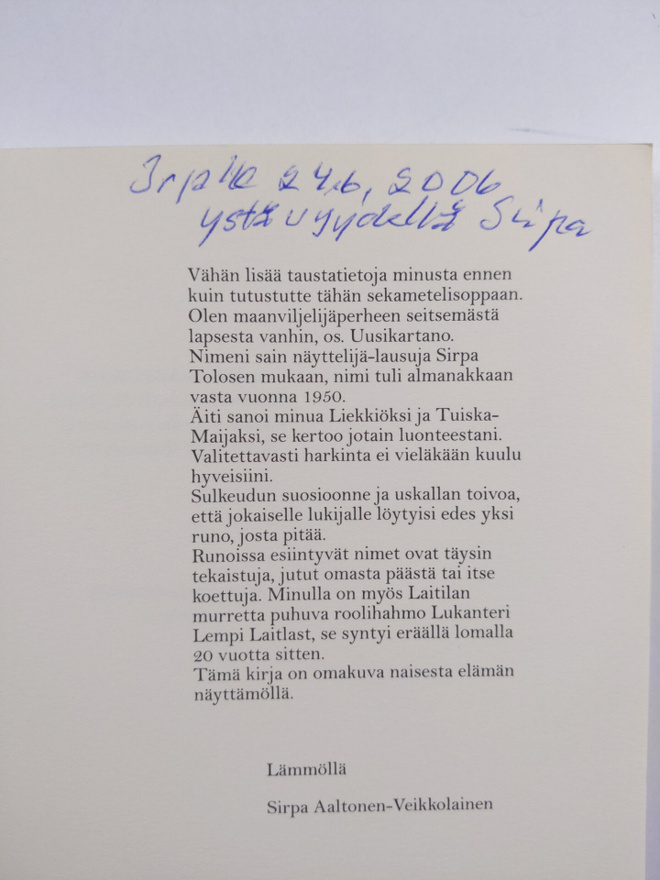 Irpalle 24.6, 2006
ystävyydellä Sirpa
Vähän lisää taustatietoja minusta ennen
kuin tutustutte tähän sekametelisoppaan.
Olen maanviljelijäperheen seitsemästä
lapsesta vanhin, os. Uusikartano.
Nimeni sain näyttelijä-lausuja Sirpa
Tolosen mukaan, nimi tuli almanakkaan
vasta vuonna 1950.
Äiti sanoi minua Liekkiöksi ja Tuiska-
Maijaksi, se kertoo jotain luonteestani.
Valitettavasti harkinta ei vieläkään kuulu
hyveisiini.
Sulkeudun suosioonne ja uskallan toivoa,
että jokaiselle lukijalle löytyisi edes yksi
runo, josta pitää.
Runoissa esiintyvät nimet ovat täysin
tekaistuja, jutut omasta päästä tai itse
koettuja. Minulla on myös Laitilan
murretta puhuva roolihahmo Lukanteri
Lempi Laitlast, se syntyi eräällä lomalla
20 vuotta sitten.
Tämä kirja on omakuva naisesta elämän
näyttämöllä.
Lämmöllä
Sirpa Aaltonen-Veikkolainen